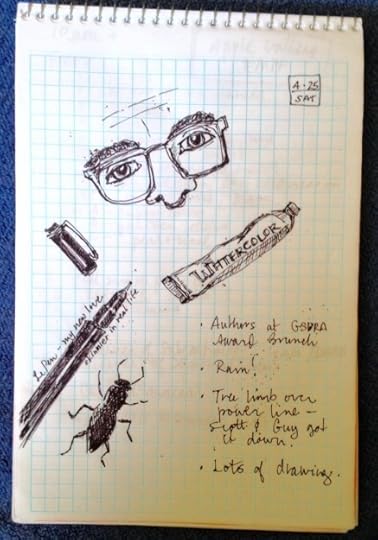 4·25
SAT
WATERCOLOR
Le Pen - my new love
skinnier in real life
· Authors at
Award Brunch
· Rain!
· Tree limb over
power line –
Scott & Guy got
it down.
· Lots of drawing.